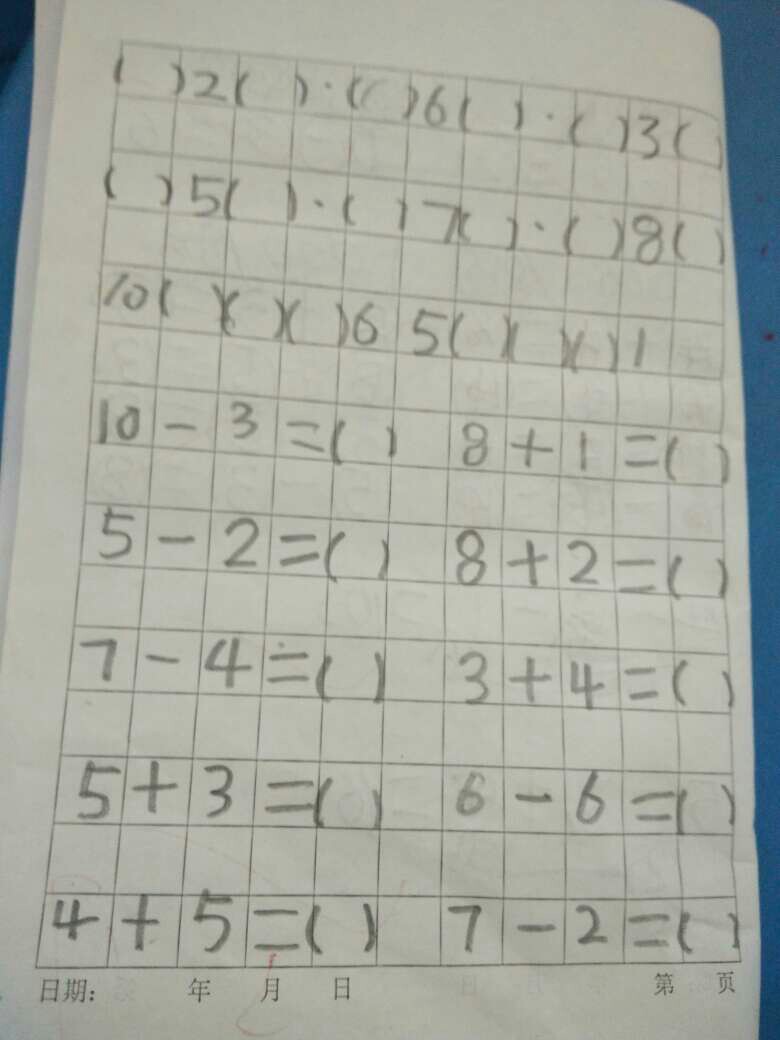 ( )2( )·( )6( )·( )3( )
( )5( )·( )7( )·( )8( )
10( )( )( )6 5( )( )( )1
10-3=( ) 8+1=( )
5-2=( ) 8+2=( )
7-4=( ) 3+4=( )
5+3=( ) 6-6=( )
4+5=( ) 7-2=( )
日期: 年 月 日 第 页